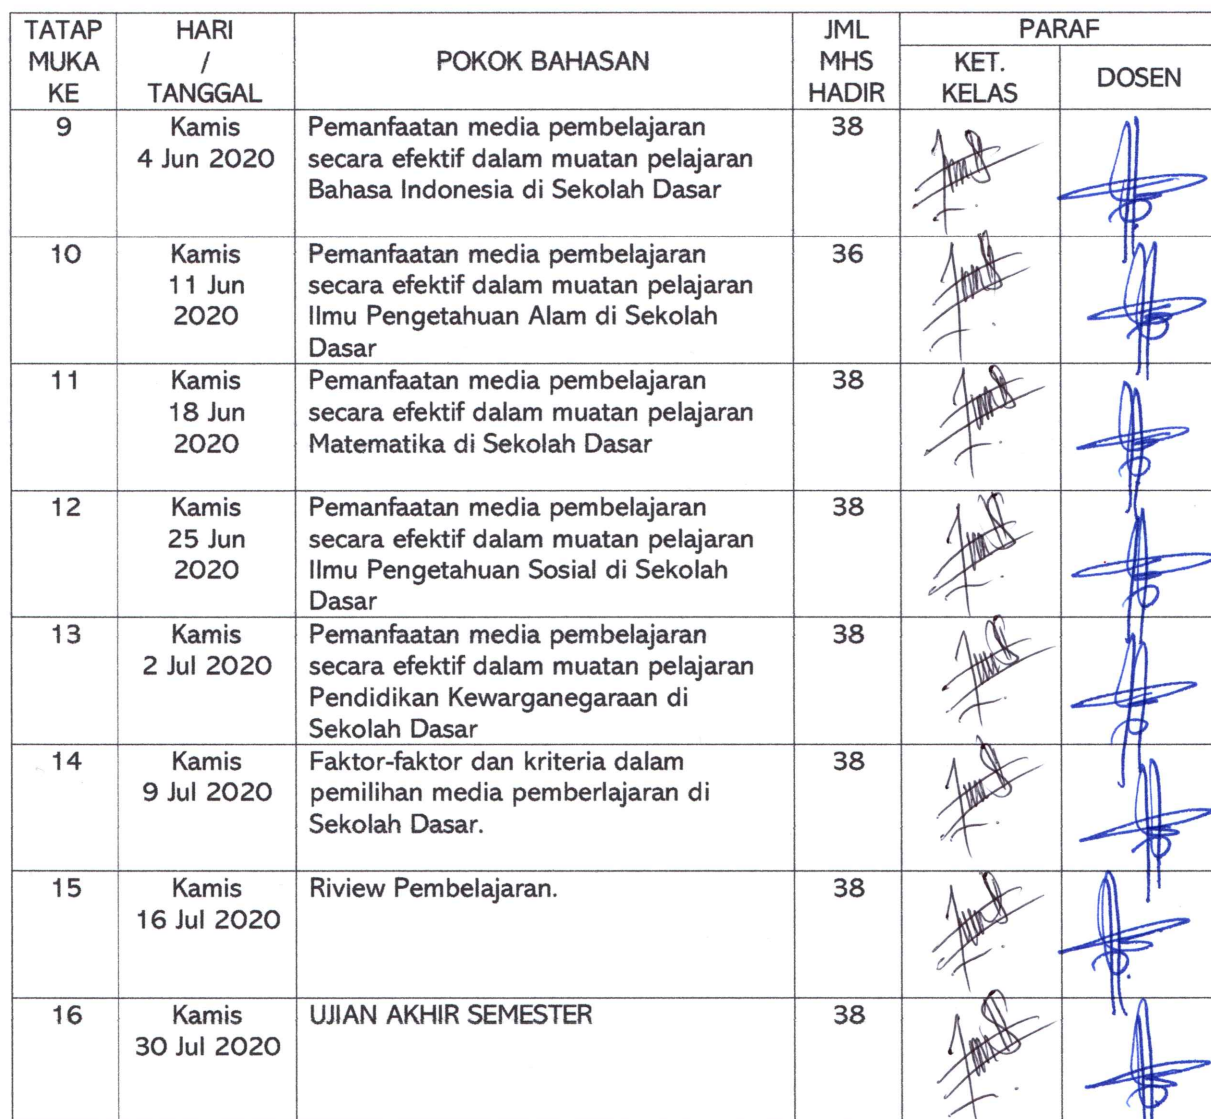 TATAP MUKA KE
HARI / TANGGAL
POKOK BAHASAN
JML MHS HADIR
PARAF
KET. KELAS
DOSEN
9
Kamis
4 Jun 2020
Pemanfaatan media pembelajaran
secara efektif dalam muatan pelajaran
Bahasa Indonesia di Sekolah Dasar
38
10
Kamis
11 Jun
2020
Pemanfaatan media pembelajaran
secara efektif dalam muatan pelajaran
Ilmu Pengetahuan Alam di Sekolah
Dasar
36
11
Kamis
18 Jun
2020
Pemanfaatan media pembelajaran
secara efektif dalam muatan pelajaran
Matematika di Sekolah Dasar
38
12
Kamis
25 Jun
2020
Pemanfaatan media pembelajaran
secara efektif dalam muatan pelajaran
Ilmu Pengetahuan Sosial di Sekolah
Dasar
38
13
Kamis
2 Jul 2020
Pemanfaatan media pembelajaran
secara efektif dalam muatan pelajaran
Pendidikan Kewarganegaraan di
Sekolah Dasar
38
14
Kamis
9 Jul 2020
Faktor-faktor dan kriteria dalam
pemilihan media pemberlajaran di
Sekolah Dasar.
38
15
Kamis
16 Jul 2020
Riview Pembelajaran.
38
16
Kamis
30 Jul 2020
UJIAN AKHIR SEMESTER
38